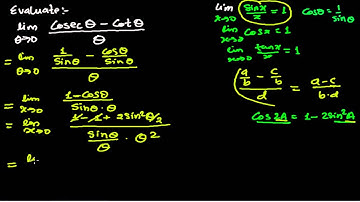 Evaluate:-
lim θ→0 (Cosecθ - Cotθ)/θ
= lim θ→0 (1/Sinθ - Cosθ/Sinθ)/θ
= lim x→0 (1-Cosθ)/(Sinθ·θ)
= lim x→0 (1-1+2Sin²θ/2)/(Sinθ/θ · θ²)
= li
lim x→0 Sinx/x = 1 Cosθ = 1/Sinθ
lim x→0 Cosx = 1
lim x→0 tanx/x = 1
(a/b - c/b)/d = (a-c)/(b·d)
Cos2A = 1-2Sin²A